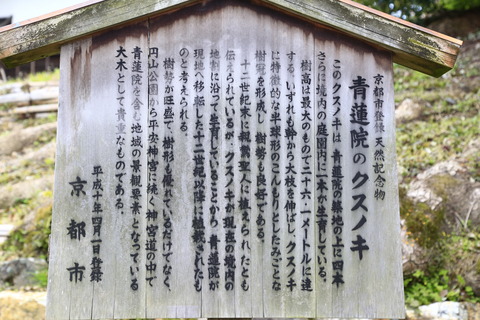 京都市登録天然記念物
青蓮院のクスノキ
このクスノキは、青蓮院の築地の上に四本
さらに境内の庭園内に一本が生育している。
樹高は最大のもので二十六・一メートルに達
する。いずれも幹から大枝を伸ばし、クスノキ
に特徴的な半球形のこんもりとしたみごとな
樹冠を形成し、樹勢も良好である。
十二世紀末に親鸞聖人に植えられたとも
伝えられているが、クスノキが現在の境内の
地割に沿って生育していることから、青蓮院が
現地へ移転した十三世紀以降に植栽されたも
のと考えられる。
樹勢が旺盛で、樹形も優れているだけでなく、
円山公園から平安神宮に続く神宮道の中で
青蓮院を含む地域の景観要素となっている
大木として貴重なものである。
平成十年四月一日登録
京都市